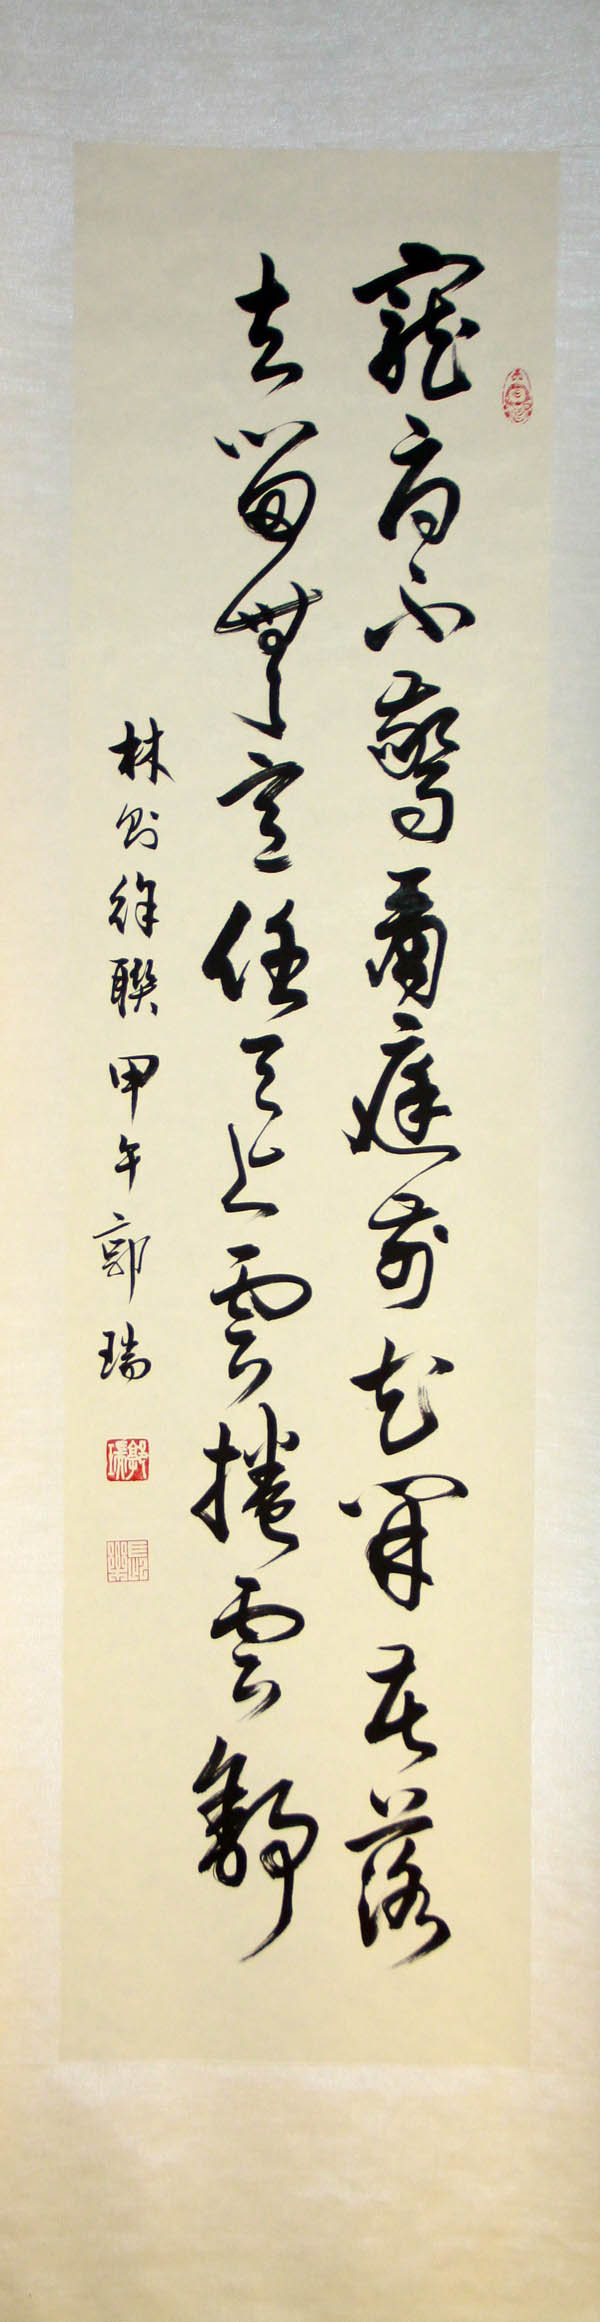 寵辱不驚看庭前花開花落
去留無意任天上雲捲雲舒
林則徐聯甲午郭瑞
郭瑞
長樂